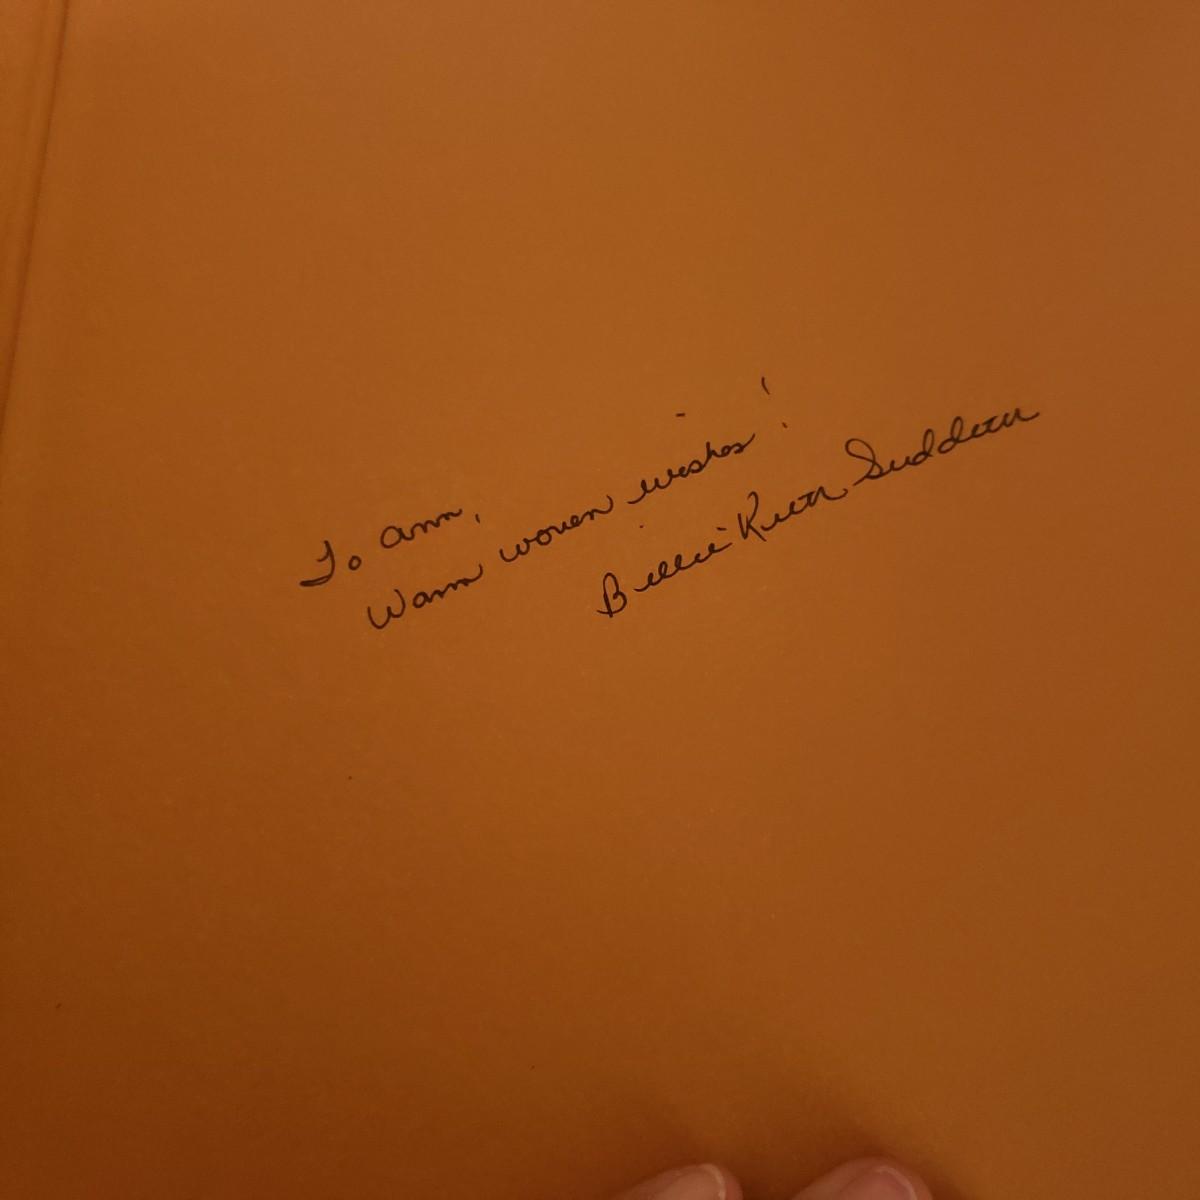 To Ann,
Warm woven wishes!
Billie Ruth Sudduth